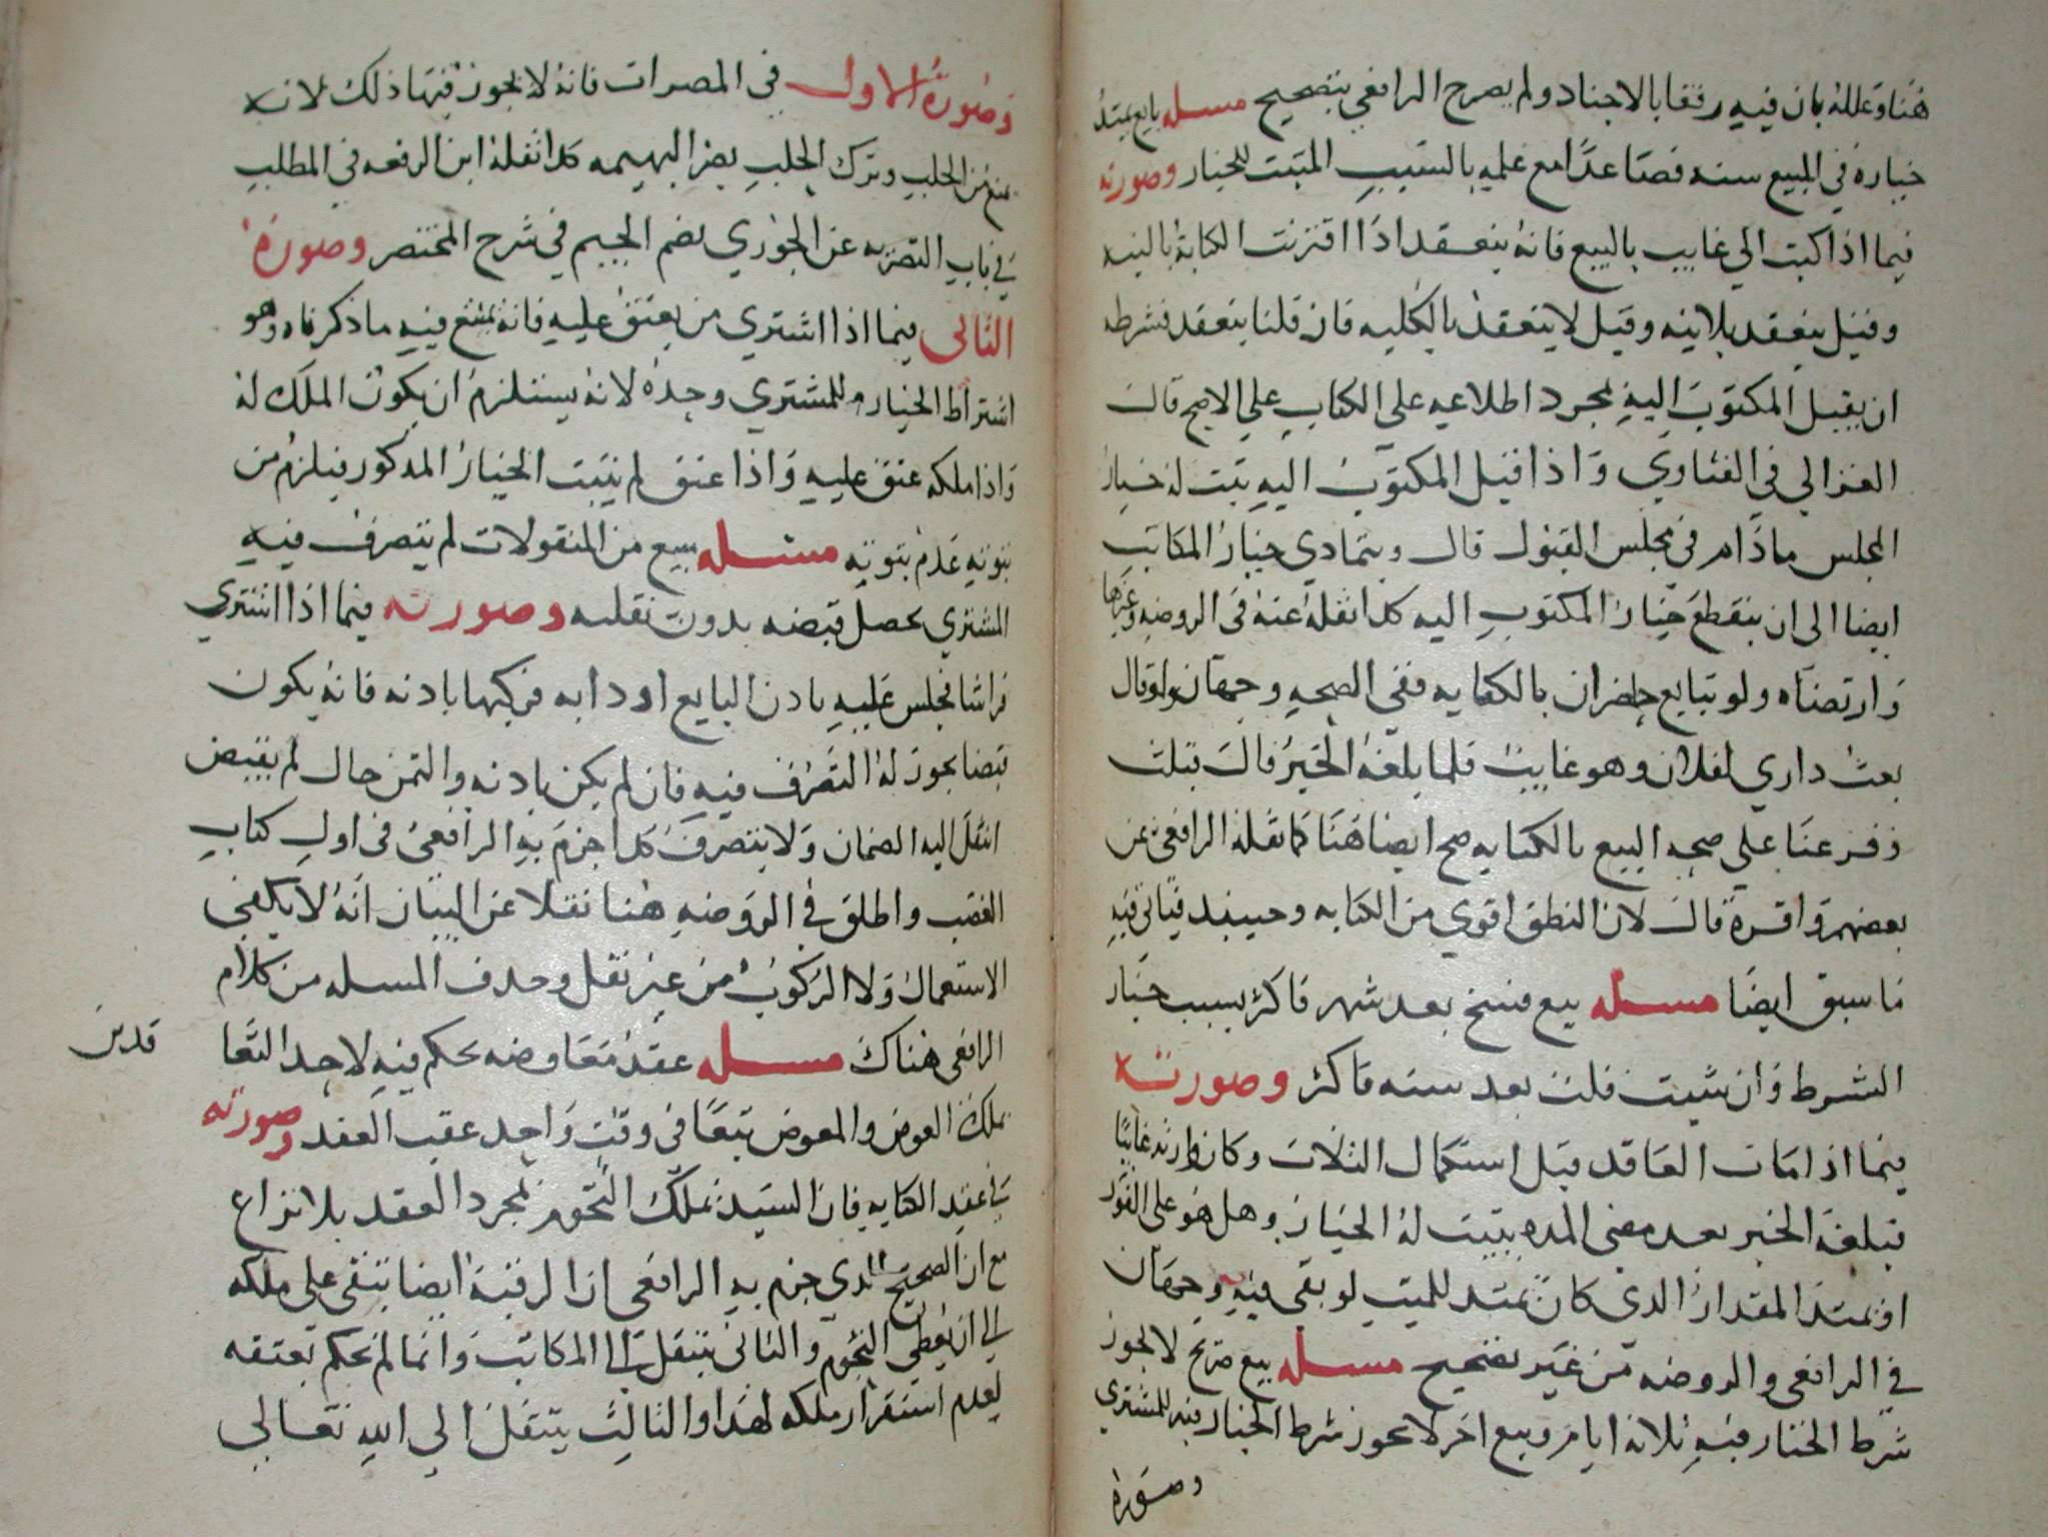 هنا وعلله بان فيه رفقا بالاجناد ولم يصرح الرافعي بتصحيح مسله بايع يمتد
خياره في المبيع سنه فصاعدا مع علمه بالسبب المثبت للخيار وصورته
فيما اذا كتب الي غايب بالبيع فانه ينعقد اذا اقترنت الكتابة بالنيه
وقيل ينعقد بلا نيه وقيل لا ينعقد بالكليه فان قلنا ينعقد فشرطه
ان يقبل المكتوب اليه بمجرد اطلاعه علي الكتاب علي الاصح قال
الغزالي في الفتاوي واذا قبل المكتوب اليه ثبت له خيار
المجلس ما دام في مجلس القبول قال ويتمادي خيار المكاتب
ايضا الي ان ينقطع خيار المكتوب اليه كذا نقله عنه في الروضه وغيرها
وارتضاه ولو تبايع حاضران بالكتابه ففي الصحه وجهان ولو قال
بعت داري لفلان وهو غايب فلما بلغه الخبر قال قبلت
وفرعنا علي صحه البيع بالكتابه صح ايضا هنا كما نقله الرافعي عن
بعضهم واقره قال لان النطق اقوي من الكتابه وحينيد فياتي فيه
ما سبق ايضا مسله بيع فسخ بعد شهر فاكثر بسبب خيار
الشرط وان شيت قلت بعد سنه فاكثر وصورته
فيما اذا مات العاقد قبل استكمال الثلاث وكان وارثه غايبا
فبلغه الخبر بعد مضي المده يثبت له الخيار وهل هو علي الفور
او يمتد المقدار الذي كان يمتد للميت لو بقي فيه وجهان
في الرافعي والروضه من غير تصحيح مسله بيع صريح لا يجوز
شرط الخيار فيه ثلاثه ايام وبيع اخر لا يجوز شرط الخيار فيه للمشتري
وصورة
وصورة الاول في المصرات فانه لا يجوز فيها ذلك لانه
يمنع من الحلب وترك الحلب يضر البهيمه كذا نقله ابن الرفعه في المطلب
في باب التصريه عن الجوري بضم الجيم في شرح المختصر وصورة
الثاني فيما اذا اشتري من يعتق عليه فانه يمتنع فيه ما ذكرناه وهو
اشتراط الخيار للمشتري وحده لانه يستلزم ان يكون الملك له
واذا ملكه عتق عليه واذا عتق لم يثبت الخيار المذكور فيلزم من
ثبوته عدم ثبوته مسله مبيع من المنقولات لم يتصرف فيه
المشتري يحصل قبضه بدون نقله وصورته فيما اذا اشتري
فراشا فجلس عليه باذن البايع او دابه فركبها باذنه فانه يكون
قبضا يجوز له التصرف فيه فان لم يكن باذنه والثمن حال لم يقبض
انتقل اليه الضمان ولا يتصرف كذا جزم به الرافعي في اول كتاب
الغصب واطلق في الروضه هنا نقلا عن البيان انه لا يكفي
الاستعمال ولا الركوب من غير نقل وحذف المسله من كلام
الرافعي هناك مسله عقد معاوضه يحكم فيه لاحد التعا
قدين
بملك العوض والمعوض تبعا في وقت واحد عقب العقد وصورته
في عقد الكتابه فان السيد يملك النجوم بمجرد العقد بلا نزاع
مع ان الصحيح الذي جزم به الرافعي ان الرقبة ايضا تبقي علي ملكه
الي ان يعطي النجوم والثاني ينتقل الي المكاتب وانما لم يحكم بعتقه
لعدم استقرار ملكه لهذا والثالث ينتقل الي الله تعالي